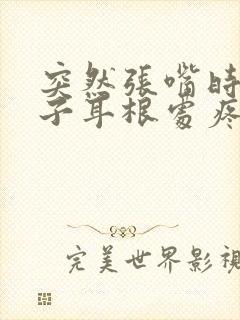 突然張嘴時
子耳根處疼
完美世界影視